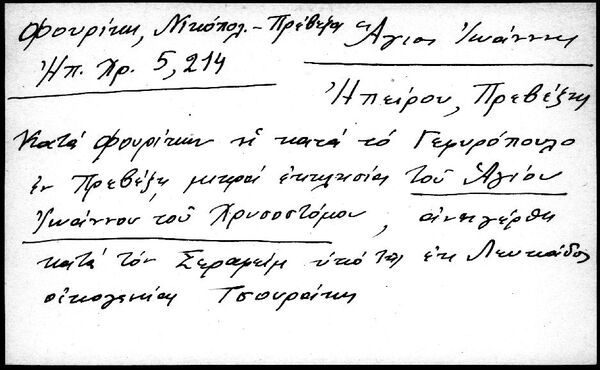 Φουρίκη, Νικόπολ.-Πρέβεζα
Ἅγιος Ἰωάννης
Ἠπ. Χρ. 5, 214
Ἠπείρου, Πρεβέζης
Κατὰ Φουρίκην ἡ κατὰ τὸ Γεφυρόπουλο
ἐν Πρεβέζῃ μικρὰ ἐκκλησία τοῦ Ἁγίου
Ἰωάννου τοῦ Χρυσοστόμου, ἀνηγέρθη
κατὰ τὸν Σεραφεὶμ ὑπὸ τῆς ἐκ Λευκάδος
οἰκογενείας Τσουράκη